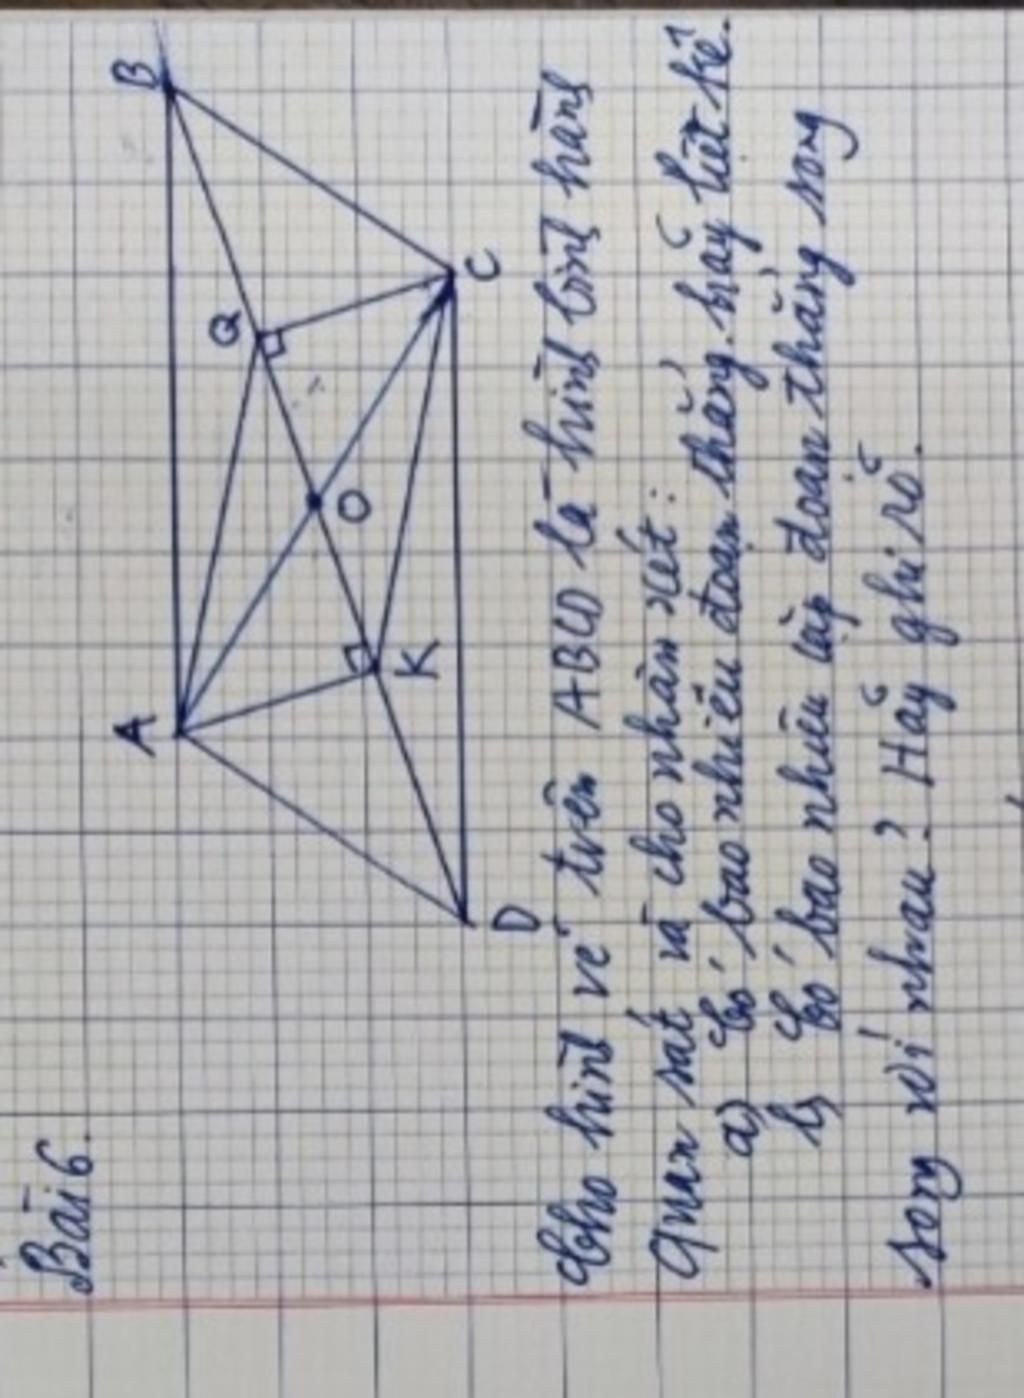 Bài 6.
A
B
Q
O
K
D
C
Cho hình vẽ trên ABCD là hình bình hành
Quan sát và cho nhận xét:
a) Có bao nhiêu đoạn thẳng. hãy liệt kê.
b) Có bao nhiêu cặp đoạn thẳng song
song với nhau? Hãy ghi rõ.